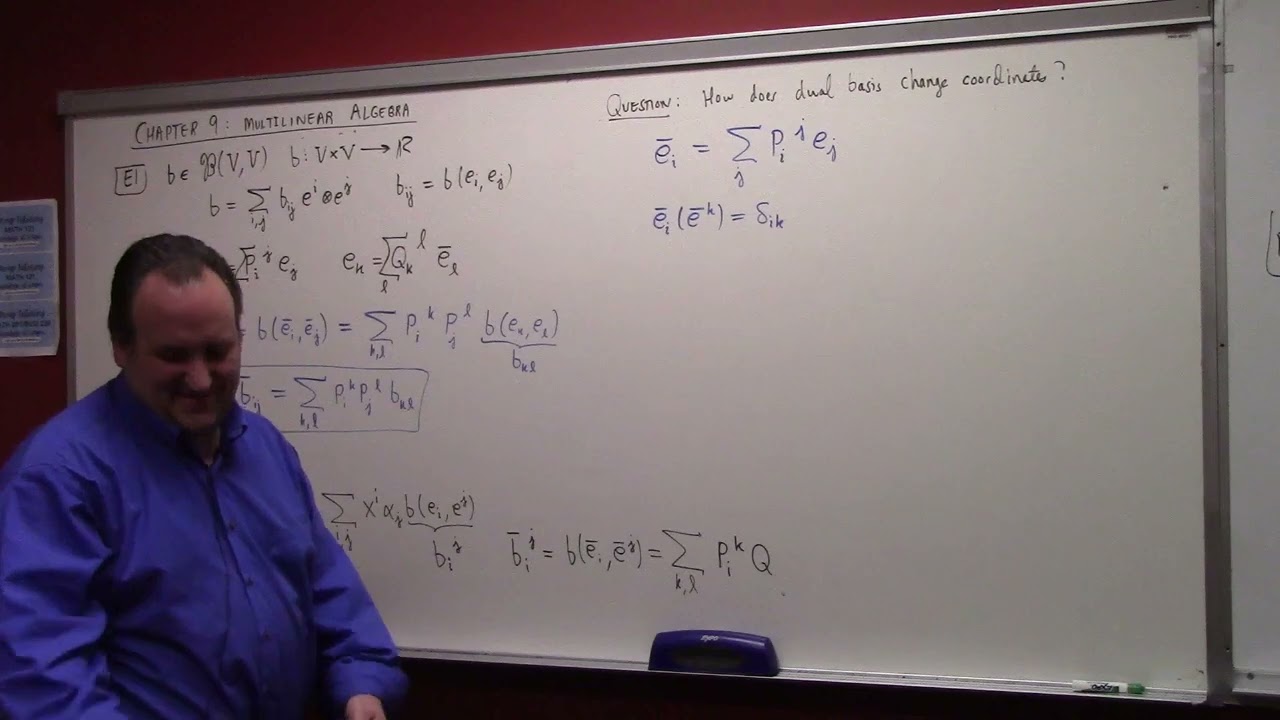 CHAPTER 9: MULTILINEAR ALGEBRA
E1 b ∈ B(V, V) b : V × V → R
b = ∑_{i,j} b_{ij} e^i ⊗ e^j b_{ij} = b(e_i, e_j)
= ∑ P_i^j e_j e_k = ∑_l Q_k^l ē_l
= b(ē_i, ē_j) = ∑_{k,l} P_i^k P_j^l b(e_k, e_l)
b_{kl}
b̄_{ij} = ∑_{k,l} P_i^k P_j^l b_{kl}
∑_{i,j} x^i α_j b(e_i, e^j)
b_i^j b̄_i^j = b(ē_i, ē^j) = ∑_{k,l} P_i^k Q
QUESTION: How does dual basis change coordinates?
ē_i = ∑_j P_i^j e_j
ē_i(ē^k) = δ_{ik}
EXPO